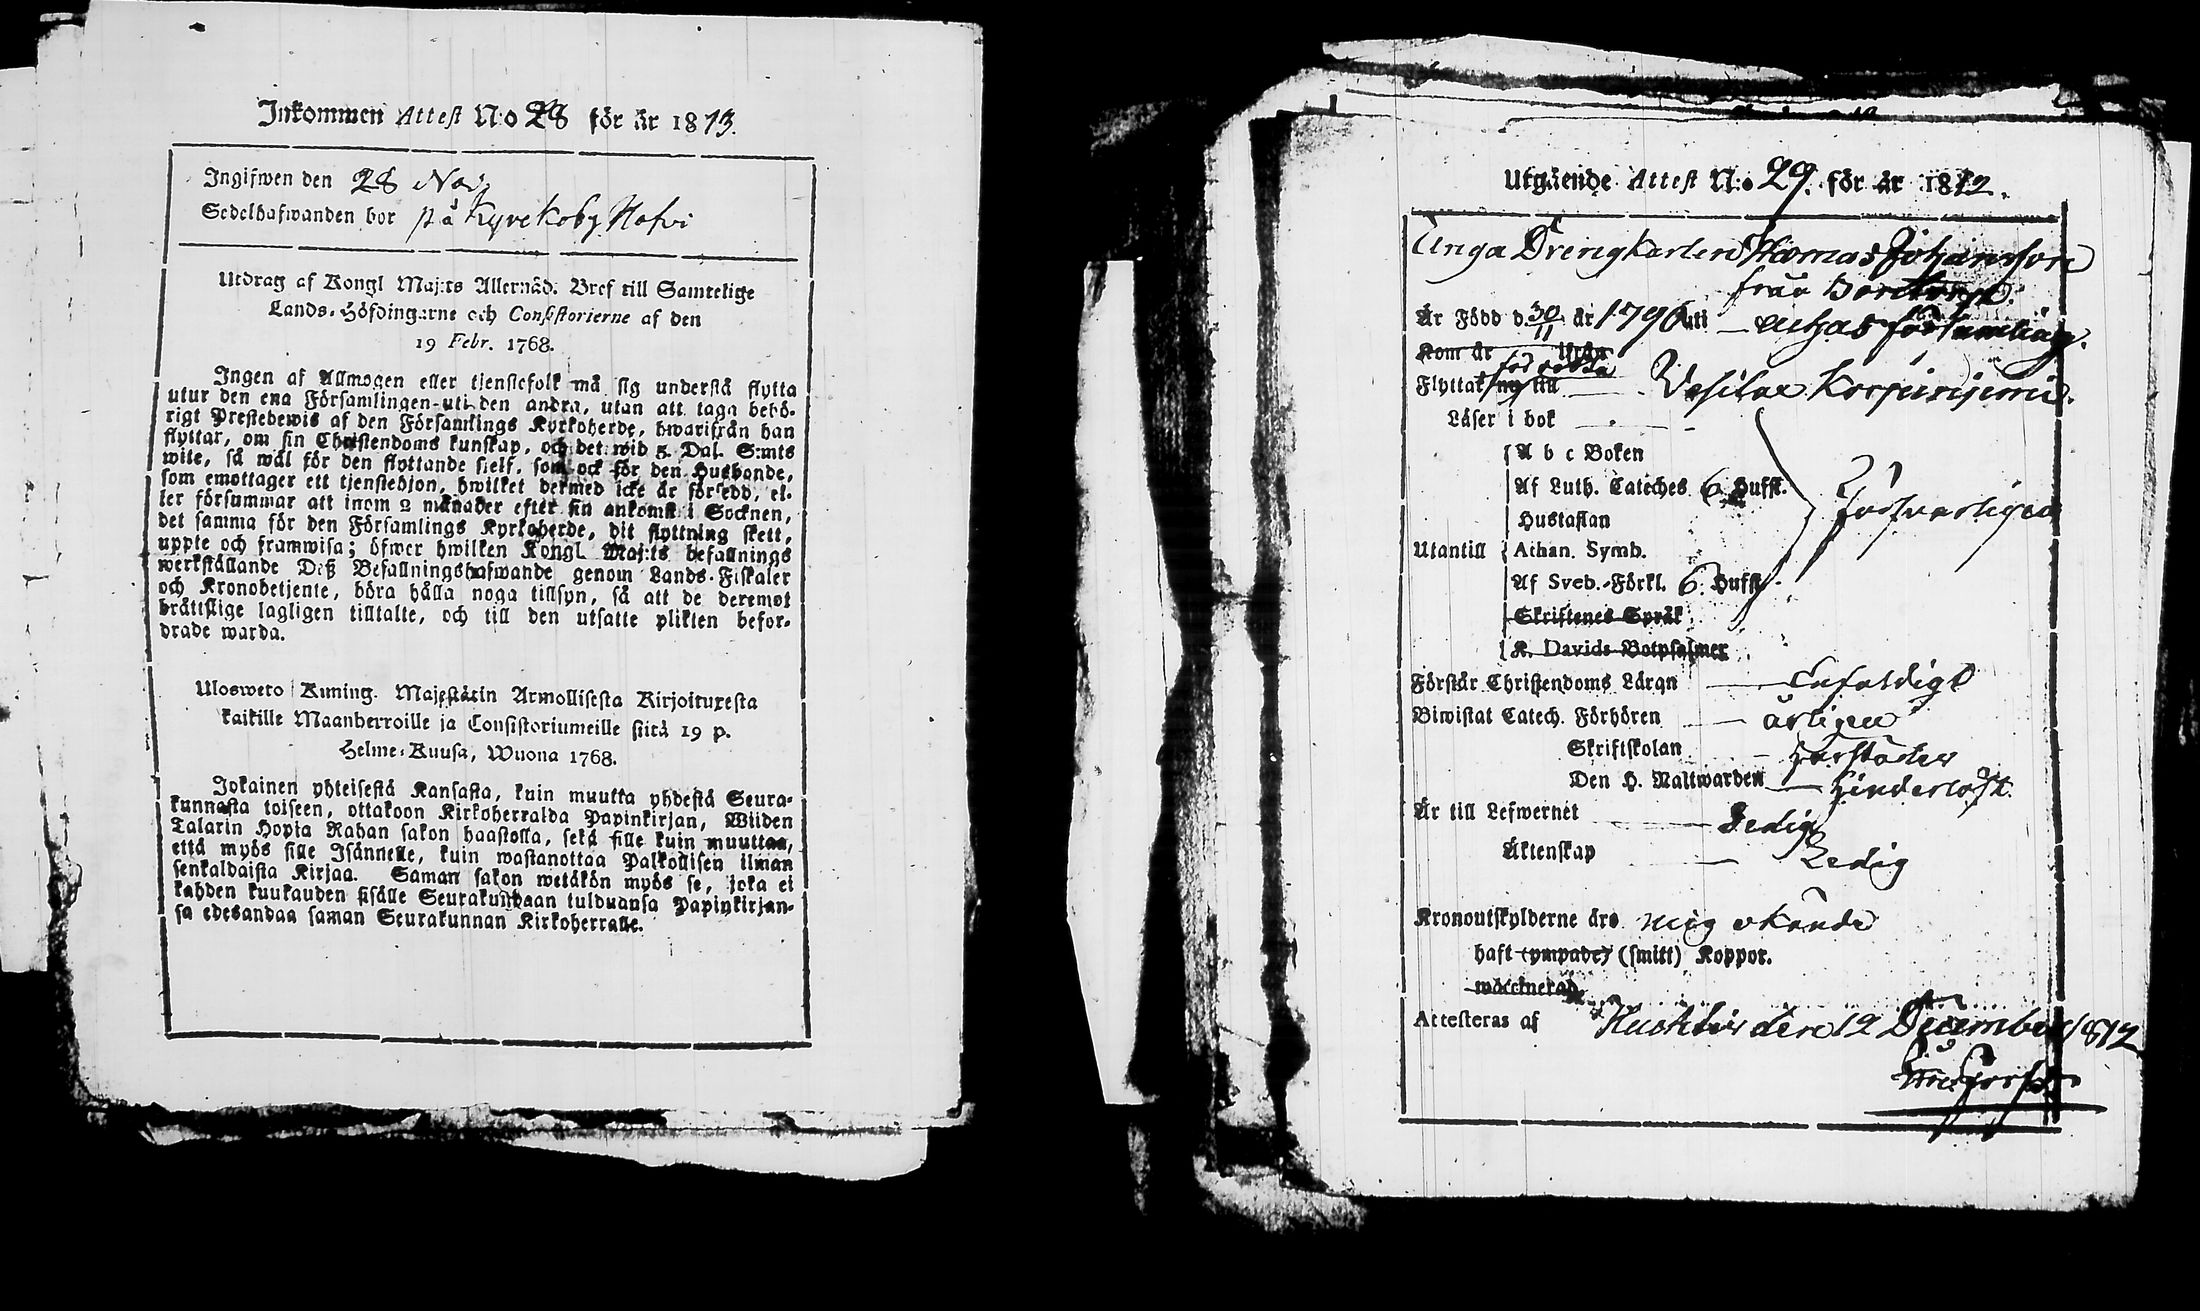 Inkommen Attest N:o 28 för år 1813.
Ingifwen den 28 Nov
Sedelhafwanden bor på Kyrekoby Hofvi
Utdrag af Kongl Maj:ts Allernåd. Bref till Samtelige
Lands-Höfdingarne och Consistorierne af den
19 Febr. 1768.
Ingen af Allmogen eller tjenstefolk må sig understå flytta
utur den ena Församlingen uti den andra, utan att taga behö-
rigt Prestebewis af den Församlings Kyrkoherde, hwarifrån han
flyttar, om sin Christendoms kunskap, och det wid 5. Dal. S:mts
wite, så wäl för den flyttande sielf, som ock för den Husbonde,
som emottager ett tjenstehjon, hwilket dermed icke är försedd, el-
ler försummar att inom 2 månader efter sin ankomst i Socknen,
det samma för den Församlings Kyrkoherde, dit flyttning skett,
uppte och framwisa; öfwer hwilken Kongl Maj:ts befallnings
werkställande Deß Befallningshafwande genom Lands-Fiskaler
och Kronobetjente, böra hålla noga tillsyn, så att de deremot
bråttslige lagligen tilltalte, och till den utsatte plikten befor-
drade warda.
Ulosweto Kuning. Majestätin Armollisesta Kirjoituxesta
kaikille Maanherroille ja Consistoriumeille siitä 19 p.
Helme-Kuusa, Wuona 1768.
Jokainen yhteisestä Kansasta, kuin muutta yhdestä Seura-
kunnasta toiseen, ottakoon Kirkoherralda Papinkirjan, Wiiden
Talarin Hopia Rahan sakon haastolla, sekä sille kuin muuttaa,
että myös sille Isännelle, kuin wastanottaa Palkollisen ilman
senkaldaista Kirjaa. Saman sakon wetäkön myös se, joka ei
kahden kuukauden sisälle Seurakundaan tulduansa Papinkirjan-
sa edesandaa saman Seurakunnan Kirkoherralle.
Utgående Attest N:o 29. för år 1812.
Unga Drengkarlen Thomas Johansson
från
Är Född d. 30/11 år 1796 uti detta församling.
Kom år ifrån
Flyttar nu till Wesilax Korpeinjemi.
Läser i bok
A b c Boken
Af Luth. Cateches 6. Hufst.
Hustaflan
Försvarligen
Utantill Athan. Symb.
Af Sveb.-Förkl. 6. Hufst.
Skriftenes Språk
K. Davids Botpsalmer
Förstår Christendoms Läran Enfaldigt
Biwistat Catech. Förhören årligen
Skriftskolan
Den H. Nattwarden hinderlöst.
Är till Lefwernet Sedig
Äktenskap Ledig
Kronoutskylderne äro mig okände
haft (ympade) (smitt) Koppor.
waccinerad
Attesteras af den 12 December 1812